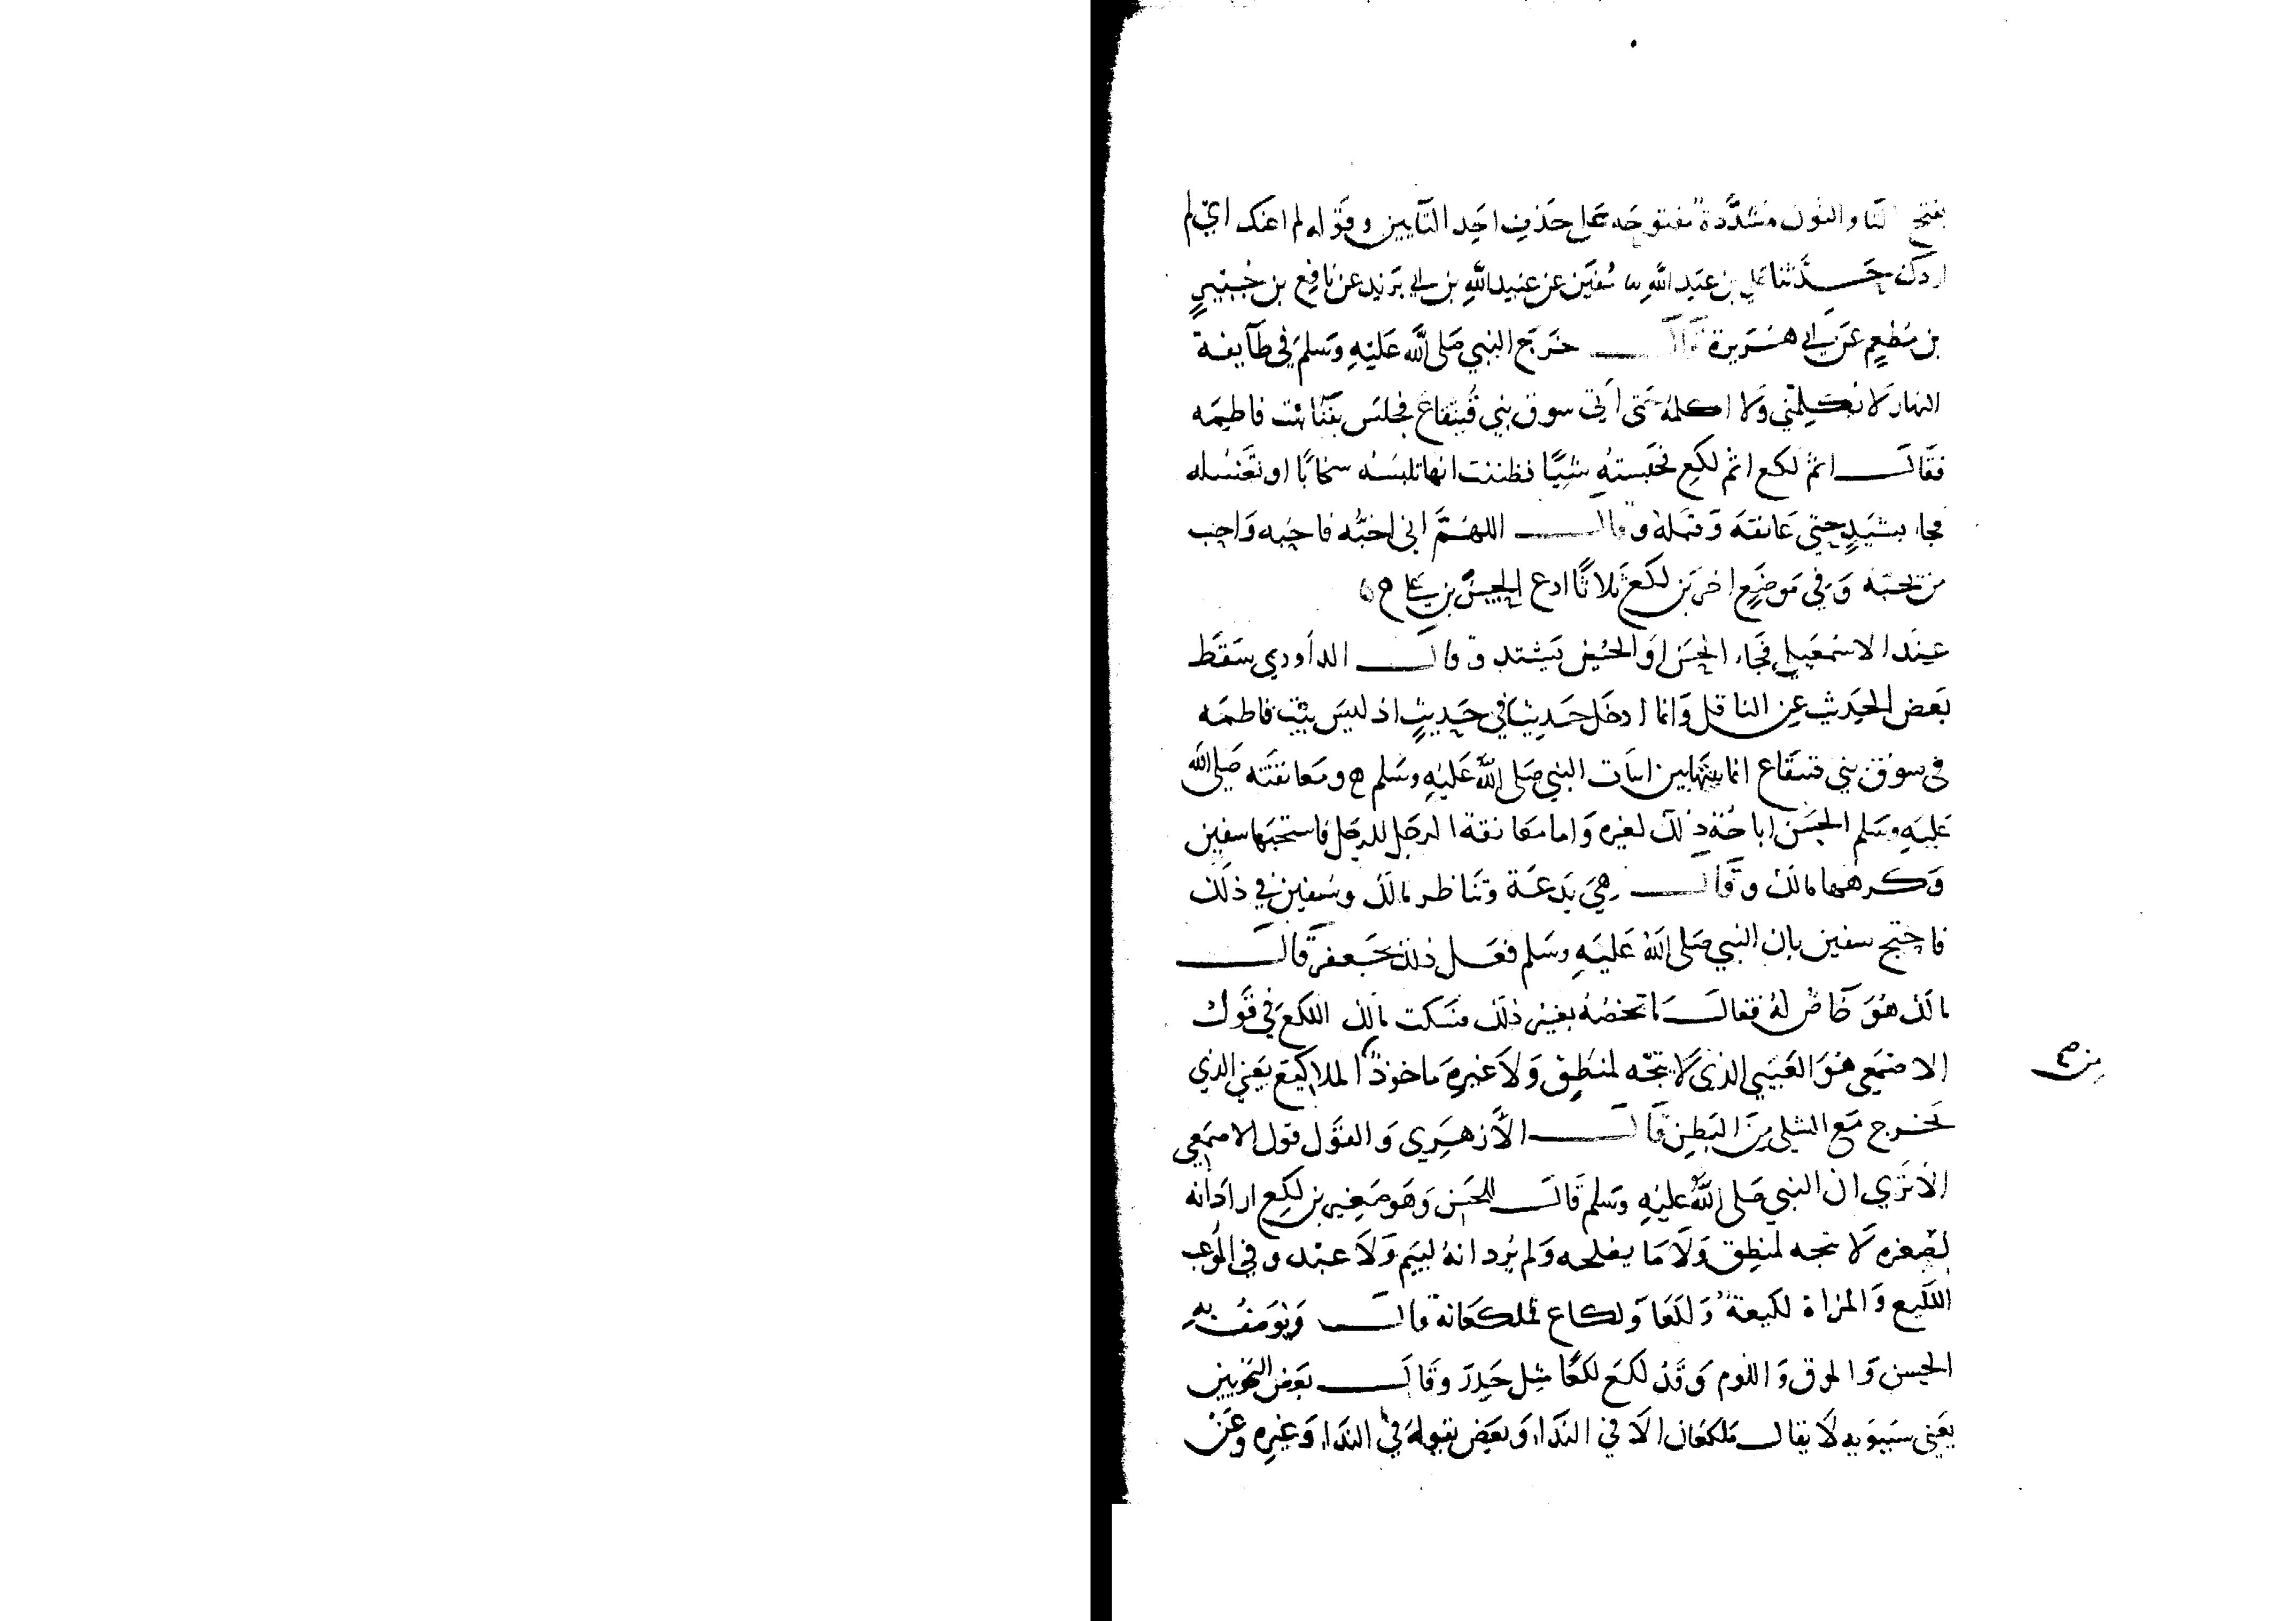 بفتح التا والنون مشددة مفتوحة على حذف احد التايين وقوله لم اعنك اي لم
اردك حدثنا علي بن عبد الله سفين عن عبيد الله بن ابي يزيد عن نافع بن جبير
بن مطعم عن ابي هريرة قال خرج النبي صلى الله عليه وسلم في طآيفة
النهار لا يكلمني ولا اكلمه حتى اتى سوق بني قينقاع فجلس بفنا بيت فاطمه
فقال اثم لكع اثم لكع فحبسته شيًا فظننت انها تلبسه سخابًا او تغسله
فجاء يشتد حتى عانقه وقبله وقال اللهم اني احبه فاحبه واحب
من يحبه وفي موضع اخر اين لكع ثلاثا ادع الحسن بن علي ح
عند الاسمعيلي فجاء الحسن او الحسين يشتد وقال الداودي سقط
بعض الحديث عن الناقل وانما ادخل حديثا في حديث اذ ليس بيت فاطمه
في سوق بني قينقاع انما بيتها بين ابيات النبي صلى الله عليه وسلم ح ومعانقته صلى الله
عليه وسلم الحسن اباحة ذلك لغيره واما معانقة الرجل للرجل فاستحبها سفين
وكرهها مالك وقال هي بدعة وتناظر مالك وسفين في ذلك
فاحتج سفين بان النبي صلى الله عليه وسلم فعل ذلك بجعفر قال
مالك هو خاص له فقال ما تخصه بغير ذلك فسكت مالك اللكع في قول
الاصمعي هو العيي الذي لا يتجه لمنطق ولا غيره ماخوذ الملاكيع يعني الذي
من صح
يخرج مع السلى من البطن قال الأزهري والقول قول الاصمعي
الا ترى ان النبي صلى الله عليه وسلم قال للحسن وهو صغير اين لكع اراد انه
لصغره لا يتجه لمنطق ولا ما يصلحه ولم يرد انه لييم ولا عبد وفي الموعب
اللكيع والمراة لكيعة ولكعا ولكاع ملكعانة قال ويوصف به
الحسن والموق واللوم وقد لكع لكعًا مثل حذر وقال بعض النحويين
يعني سيبويه لا يقال ملكعان الا في النداء وبعض يقوله في النداء وغيره وعن